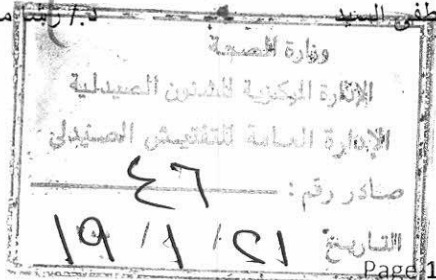 طفى السيد د./ رشا م
وزارة الصحة
الإدارة المركزية للشئون الصيدلية
الإدارة العامة للتفتيش الصيدلى
صادر رقم : ٤٦
التاريخ ٢١ / ١ / ١٩
Page 1